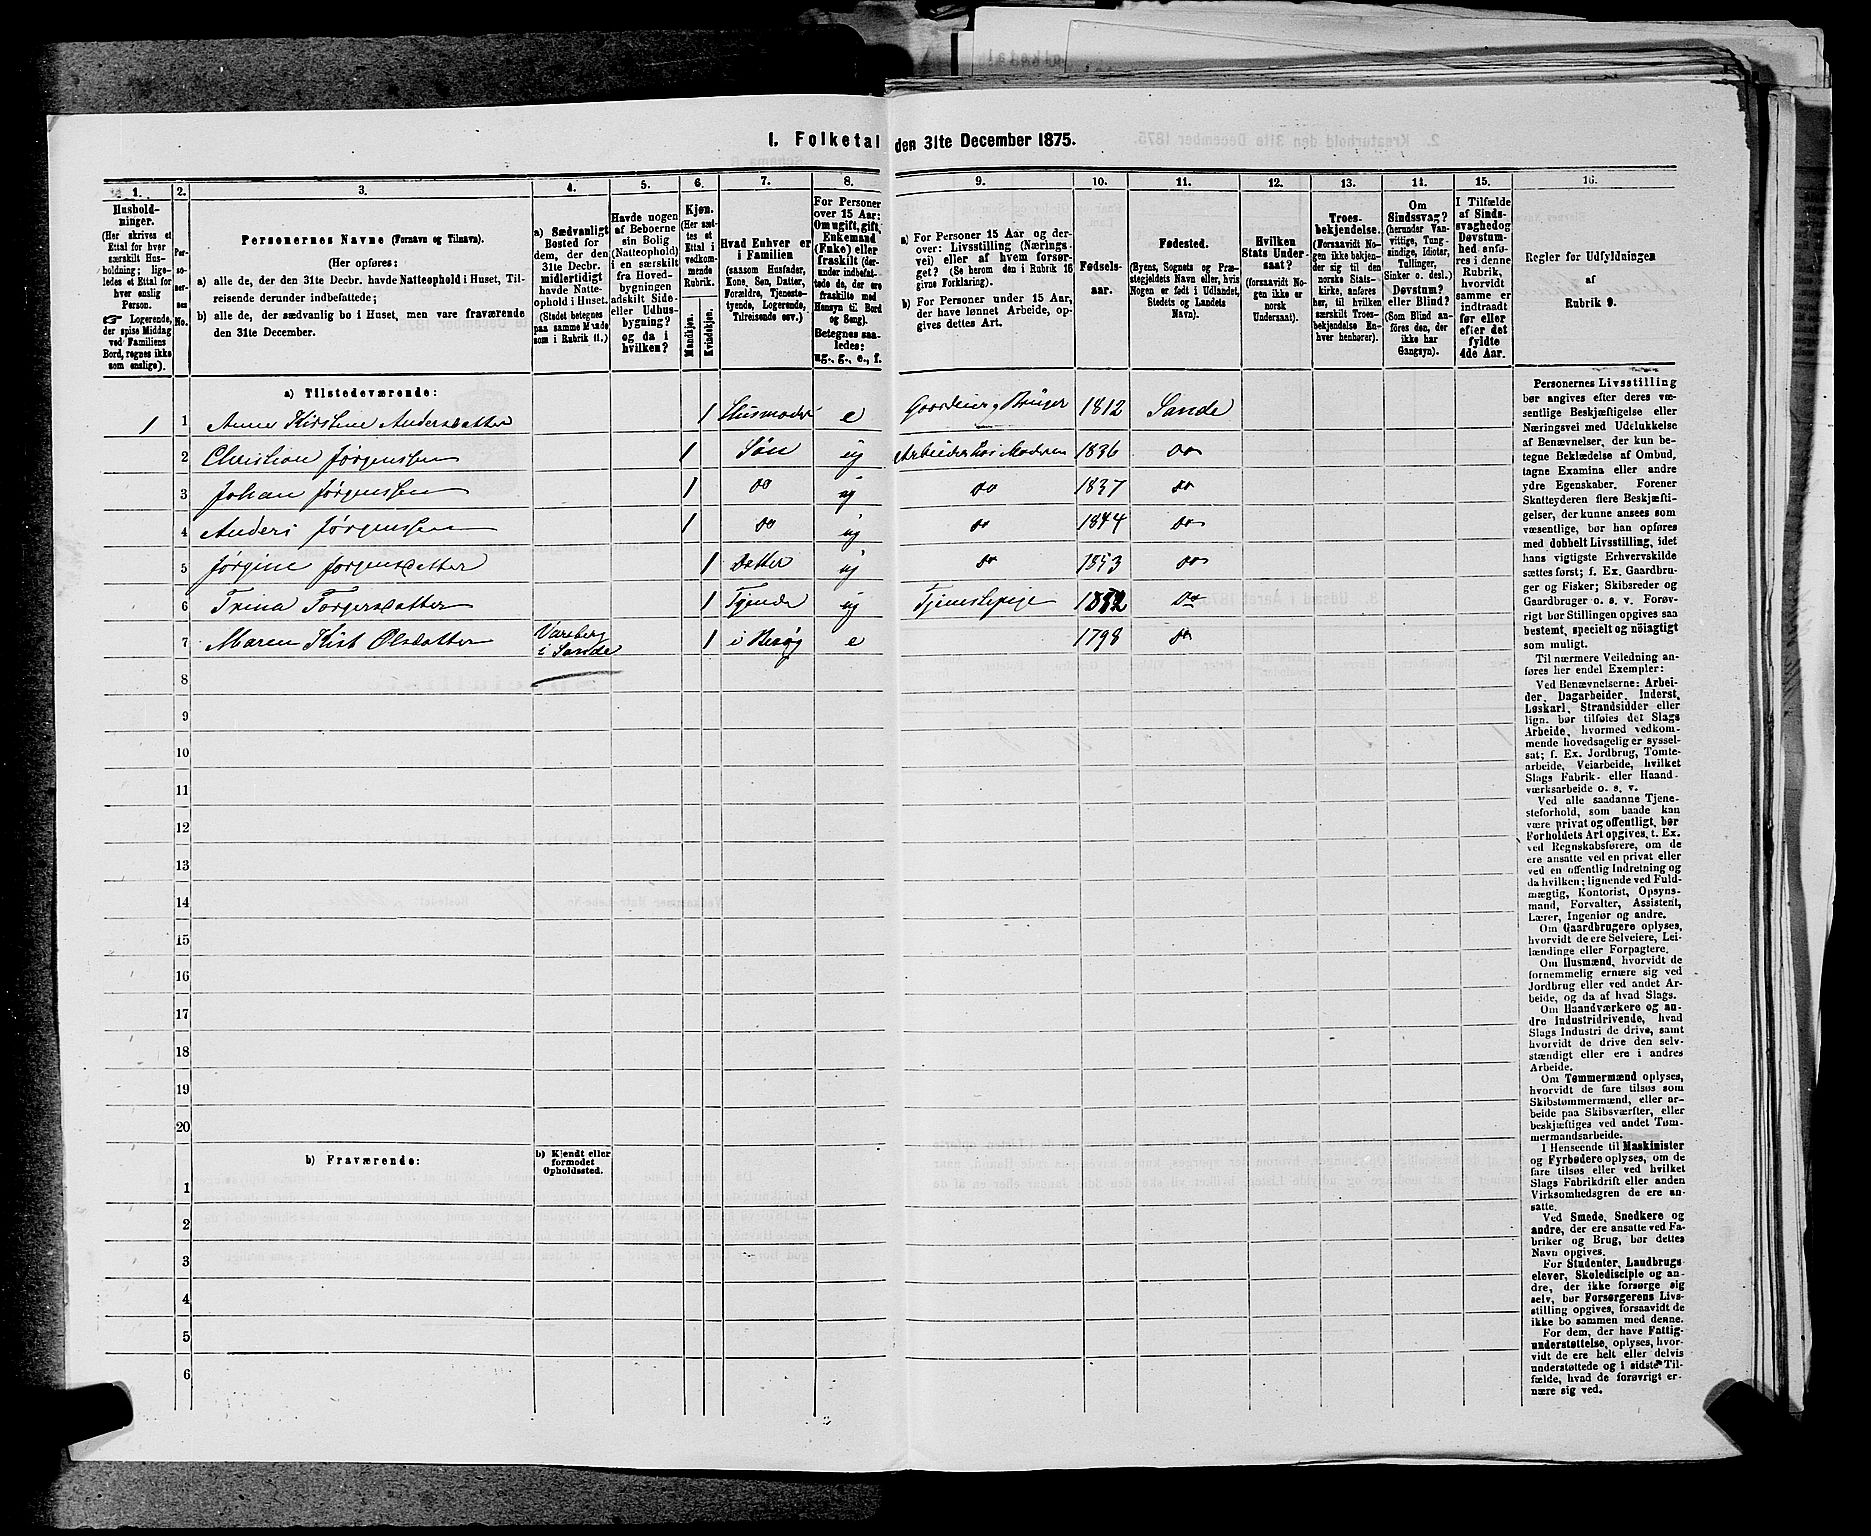 I. Folketal den 31te December 1875.
1. 2. 3. 4. 5. 6. 7. 8. 9. 10. 11. 12. 13. 14. 15. 16.
Hushold-
ninger.
(Her skrives et
Ettal for hver
særskilt Hus-
holdning; lige-
ledes et Ettal for
hver enslig
Person.
☞ Logerende,
der spise Middag
ved Familiens
Bord, regnes ikke
som enslige).
Per-
so-
ner-
nes
No.
Personernes Navne (Fornavn og Tilnavn).
(Her opføres:
a) alle de, der den 31te Decbr. havde Natteophold i Huset, Til-
reisende derunder indbefattede;
b) alle de, der sædvanlig bo i Huset, men vare fraværende
den 31te December.
a) Sædvanligt
Bosted for
dem, der den
31te Decbr.
midlertidigt
havde Natte-
ophold i Huset.
(Stedet betegnes
paa samme Maade
som i Rubrik 11.)
Havde nogen
af Beboerne
sin Bolig
(Natteophold)
i en særskilt
fra Hoved-
bygningen
adskilt Side-
eller Udhus-
bygning?
og da i
hvilken?
Kjøn.
(Her sæt-
tes et
Ettal i
vedkom-
mende
Rubrik.
Mandkjøn.
Kvindekjøn.
Hvad Enhver er
i Familien
(saasom Husfader,
Kone, Søn, Datter,
Forældre, Tjeneste-
tyende, Logerende,
Tilreisende osv.)
For Personer
over 15 Aar:
Om ugift, gift,
Enkemand
(Enke) eller
fraskilt (der-
under indbefat-
tede de, der ere
fraskilte med
Hensyn til Bord
og Seng).
Betegnes saa-
ledes:
ug., g., e., f.
a) For Personer 15 Aar og der-
over: Livsstilling (Nærings-
vei) eller af hvem forsør-
get? (Se herom den i Rubrik 16
givne Forklaring).
b) For Personer under 15 Aar,
der have lønnet Arbeide, op-
gives dettes Art.
Fødsels-
aar.
Fødested.
(Byens, Sognets og Præ-
stegjeldets Navn eller, hvis
Nogen er født i Udlandet,
Stedets og Landets
Navn).
Hvilken
Stats Under-
saat?
(forsaavidt No-
gen ikke er
norsk
Undersaat).
Troes-
bekjendelse.
(Forsaavidt No-
gen ikke bekjen-
der sig til den
norske Stats-
kirke, anføres
her, til hvilken
særskilt Troes-
bekjendelse En-
hver henhører).
Om
Sindssvag?
(herunder Van-
vittige, Tung-
sindige, Idioter,
Tullinger,
Sinker o. desl.)
Døvstum?
eller Blind?
(Som Blind an-
føres den, der
ikke har
Gangsyn).
I Tilfælde
af Sinds-
svaghed og
Døvstum-
hed anfø-
res i denne
Rubrik,
hvorvidt
samme er
indtraadt
før eller
efter det
fyldte
4de Aar.
Regler for Udfyldningen
af
Rubrik 9.
a) Tilstedeværende:
1 1 Anne Kirstine Andersdatter 1 Husmoder e Gaardeier og Bruger 1812 Sande
2 Christian Jørgenssen 1 Søn ug Arbeider hos Moderen 1836 do
3 Johan Jørgenssen 1 do ug do 1837 do
4 Anders Jørgenssen 1 do ug do 1844 do
5 Jørgine Jørgensdatter 1 Datter ug do 1853 do
6 Trina Torgersdatter 1 Tyende ug Tjenestepige do
7 Maren Kirst Olsdatter i Sande 1 i Besøg e 1798 do
8
9
10
11
12
13
14
15
16
17
18
19
20
b) Fraværende:
b) Kjendt eller
formodet
Opholdssted.
1
2
3
4
5
6
Personernes Livsstilling
bør angives efter deres væ-
sentlige Beskjæftigelse eller
Næringsvei med Udelukkelse
af Benævnelser, der kun be-
tegne Beklædelse af Ombud,
tagne Examina eller andre
ydre Egenskaber. Forener
Skatteyderen flere Beskjæfti-
gelser, der kunne ansees som
væsentlige, bør han opføres
med dobbelt Livsstilling, idet
hans vigtigste Erhvervskilde
sættes først; f. Ex. Gaardbru-
ger og Fisker; Skibsreder og
Gaardbruger o. s. v. Forøv-
rigt bør Stillingen opgives saa
bestemt, specielt og nöiagtigt
som muligt.
Til nærmere Veiledning an-
føres her endel Exempler:
Ved Benævnelserne: Arbei-
der, Dagarbeider, Inderst,
Løskarl, Strandsidder eller
lign. bør tilføies det Slags
Arbeide, hvormed vedkom-
mende hovedsagelig er syssel-
sat; f. Ex. Jordbrug, Tomte-
arbeide, Veiarbeide, hvilket
Slags Fabrik- eller Haand-
værksarbeide o. s. v.
Ved alle saadanne Tjene-
steforhold, som baade kan
være privat og offentligt, bør
Forholdets Art opgives, t. Ex.
ved Regnskabsførere, om de
ere ansatte ved en privat eller
ved en offentlig Indretning og
da hvilken; lignende ved Fuld-
mægtig, Kontorist, Opsyns-
mand, Forvalter, Assistent,
Lærer, Ingeniør og andre.
Om Gaardbrugere oplyses,
hvorvidt de ere Selveiere, Lei-
lændinge eller Forpagtere.
Om Husmænd, hvorvidt de
fornemmelig ernære sig ved
Jordbrug eller ved andet Ar-
beide, og da af hvad Slags.
Om Haandværkere og an-
dre Industridrivende, hvad
Slags Industri de drive, samt
hvorvidt de drive den selv-
stændigt eller ere i andres
Arbeide.
Om Tømmermænd oplyses,
hvorvidt de fare tilsøs som
Skibstømmermænd, eller ar-
beide paa Skibsværfter, eller
beskjæftiges ved andet Tøm-
mermandsarbeide.
I Henseende til Maskinister
og Fyrbødere oplyses, om de
fare tilsøs eller ved hvilket
Slags Fabrikdrift eller anden
Virksomhedsgren de ere an-
satte.
Ved Smede, Snedkere og
andre, der ere ansatte ved Fa-
briker og Brug, bør dettes
Navn opgives.
For Studenter, Landbrugs-
elever, Skoledisciple og an-
dre, der ikke forsørge sig
selv, bør Forsørgerens Livs-
stilling opgives, forsaavidt de
ikke bo sammen med denne.
For dem, der have Fattig-
understøttelse, oplyses, hvor-
vidt de ere helt eller delvis
understøttede og i sidste Til-
fælde, hvad de forøvrigt er-
nære sig ved.